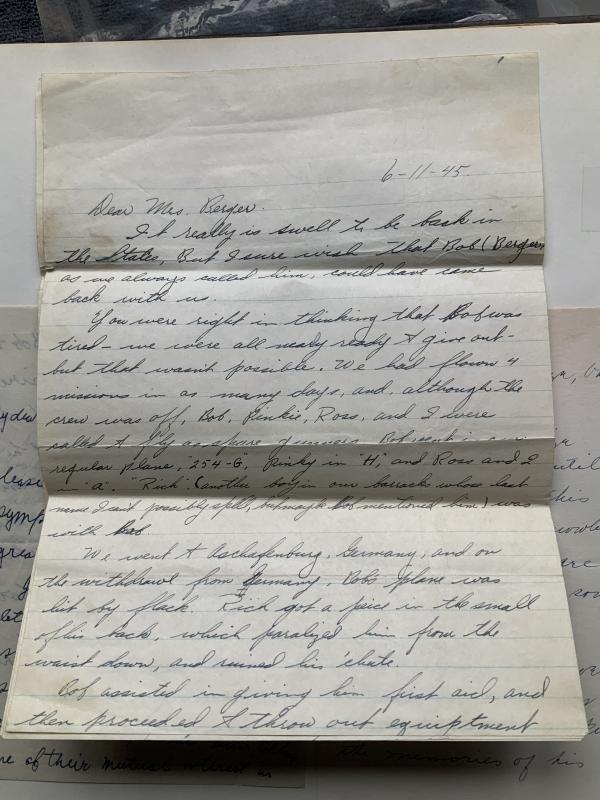 6-11-45.
Dear Mrs. Berger.
It really is swell to be back in
the States, But I sure wish that Bob (Berger,
as we always called him, could have come
back with us.
You were right in thinking that Bob was
tired - we were all nealy ready to give out -
but that wasn't possible. We had flown 4
missions in as many days, and, although the
crew was off, Bob, Pinkie, Ross, and I were
called to fly as spare gunners. Bob went in our
regular plane, "254-G", Pinky in "H", and Ross and I
in "a". "Rich" (another boy in our barracks whose last
name I can't possibly spell, but maybe Bob mentioned him) was
with Bob.
We went to Aschefenburg, Germany, and on
the withdrawl from Germany, Bobs plane was
hit by flack. Rich got a peice in the small
of his back, which paralized him from the
waist down, and ruined his 'chute.
Bob assisted in giving him first aid, and
then proceeded to throw out equiptment
re of their mutual interest in
the memories of his